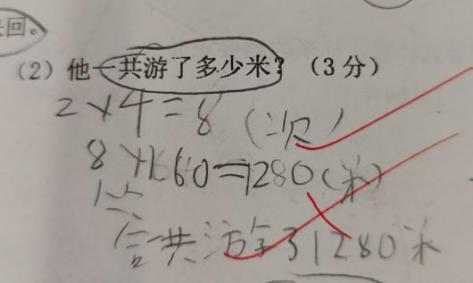 来回。
(2) 他一共游了多少米? (3分)
2×4=8 (次)
8×160=1280(米)
答:
他一共游了1280米